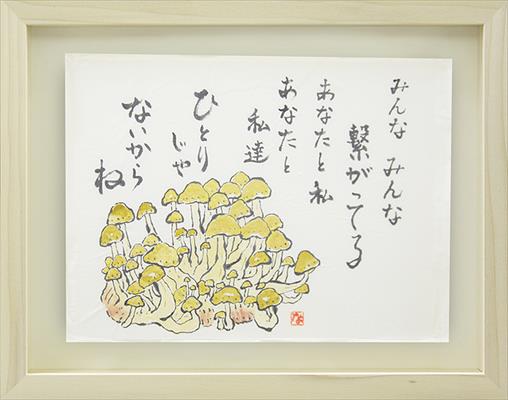 みんな みんな
繋がってる
あなたと私
あなたと
私達
ひとり
じゃ
ないから
ね